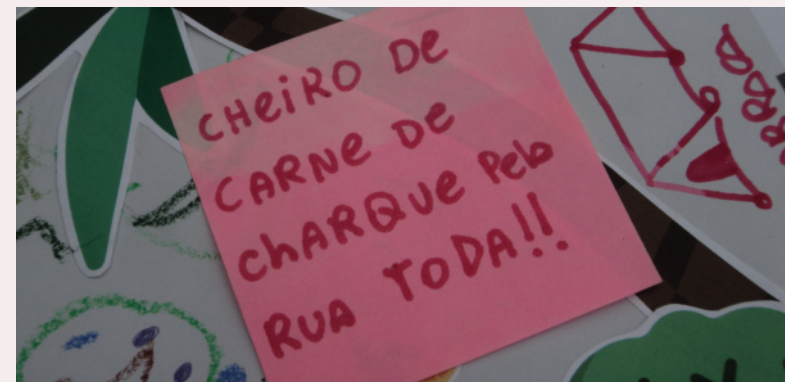 CHeiRO De
CARNe De
ChARQUe Pelo
RUA ToDA!!